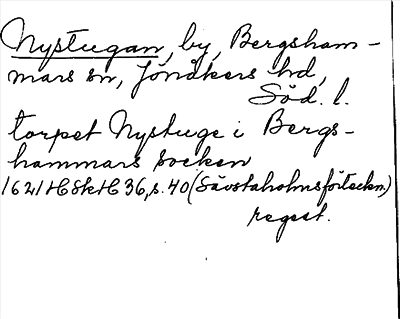 Nystugan, by, Bergsham-
mars sn, Jönåkers hd,
Söd. l.
torpet Nystuge i Bergs-
hammars socken
1621 HSH 36, s. 40 (Sävstaholmsförteckn.)
regest.